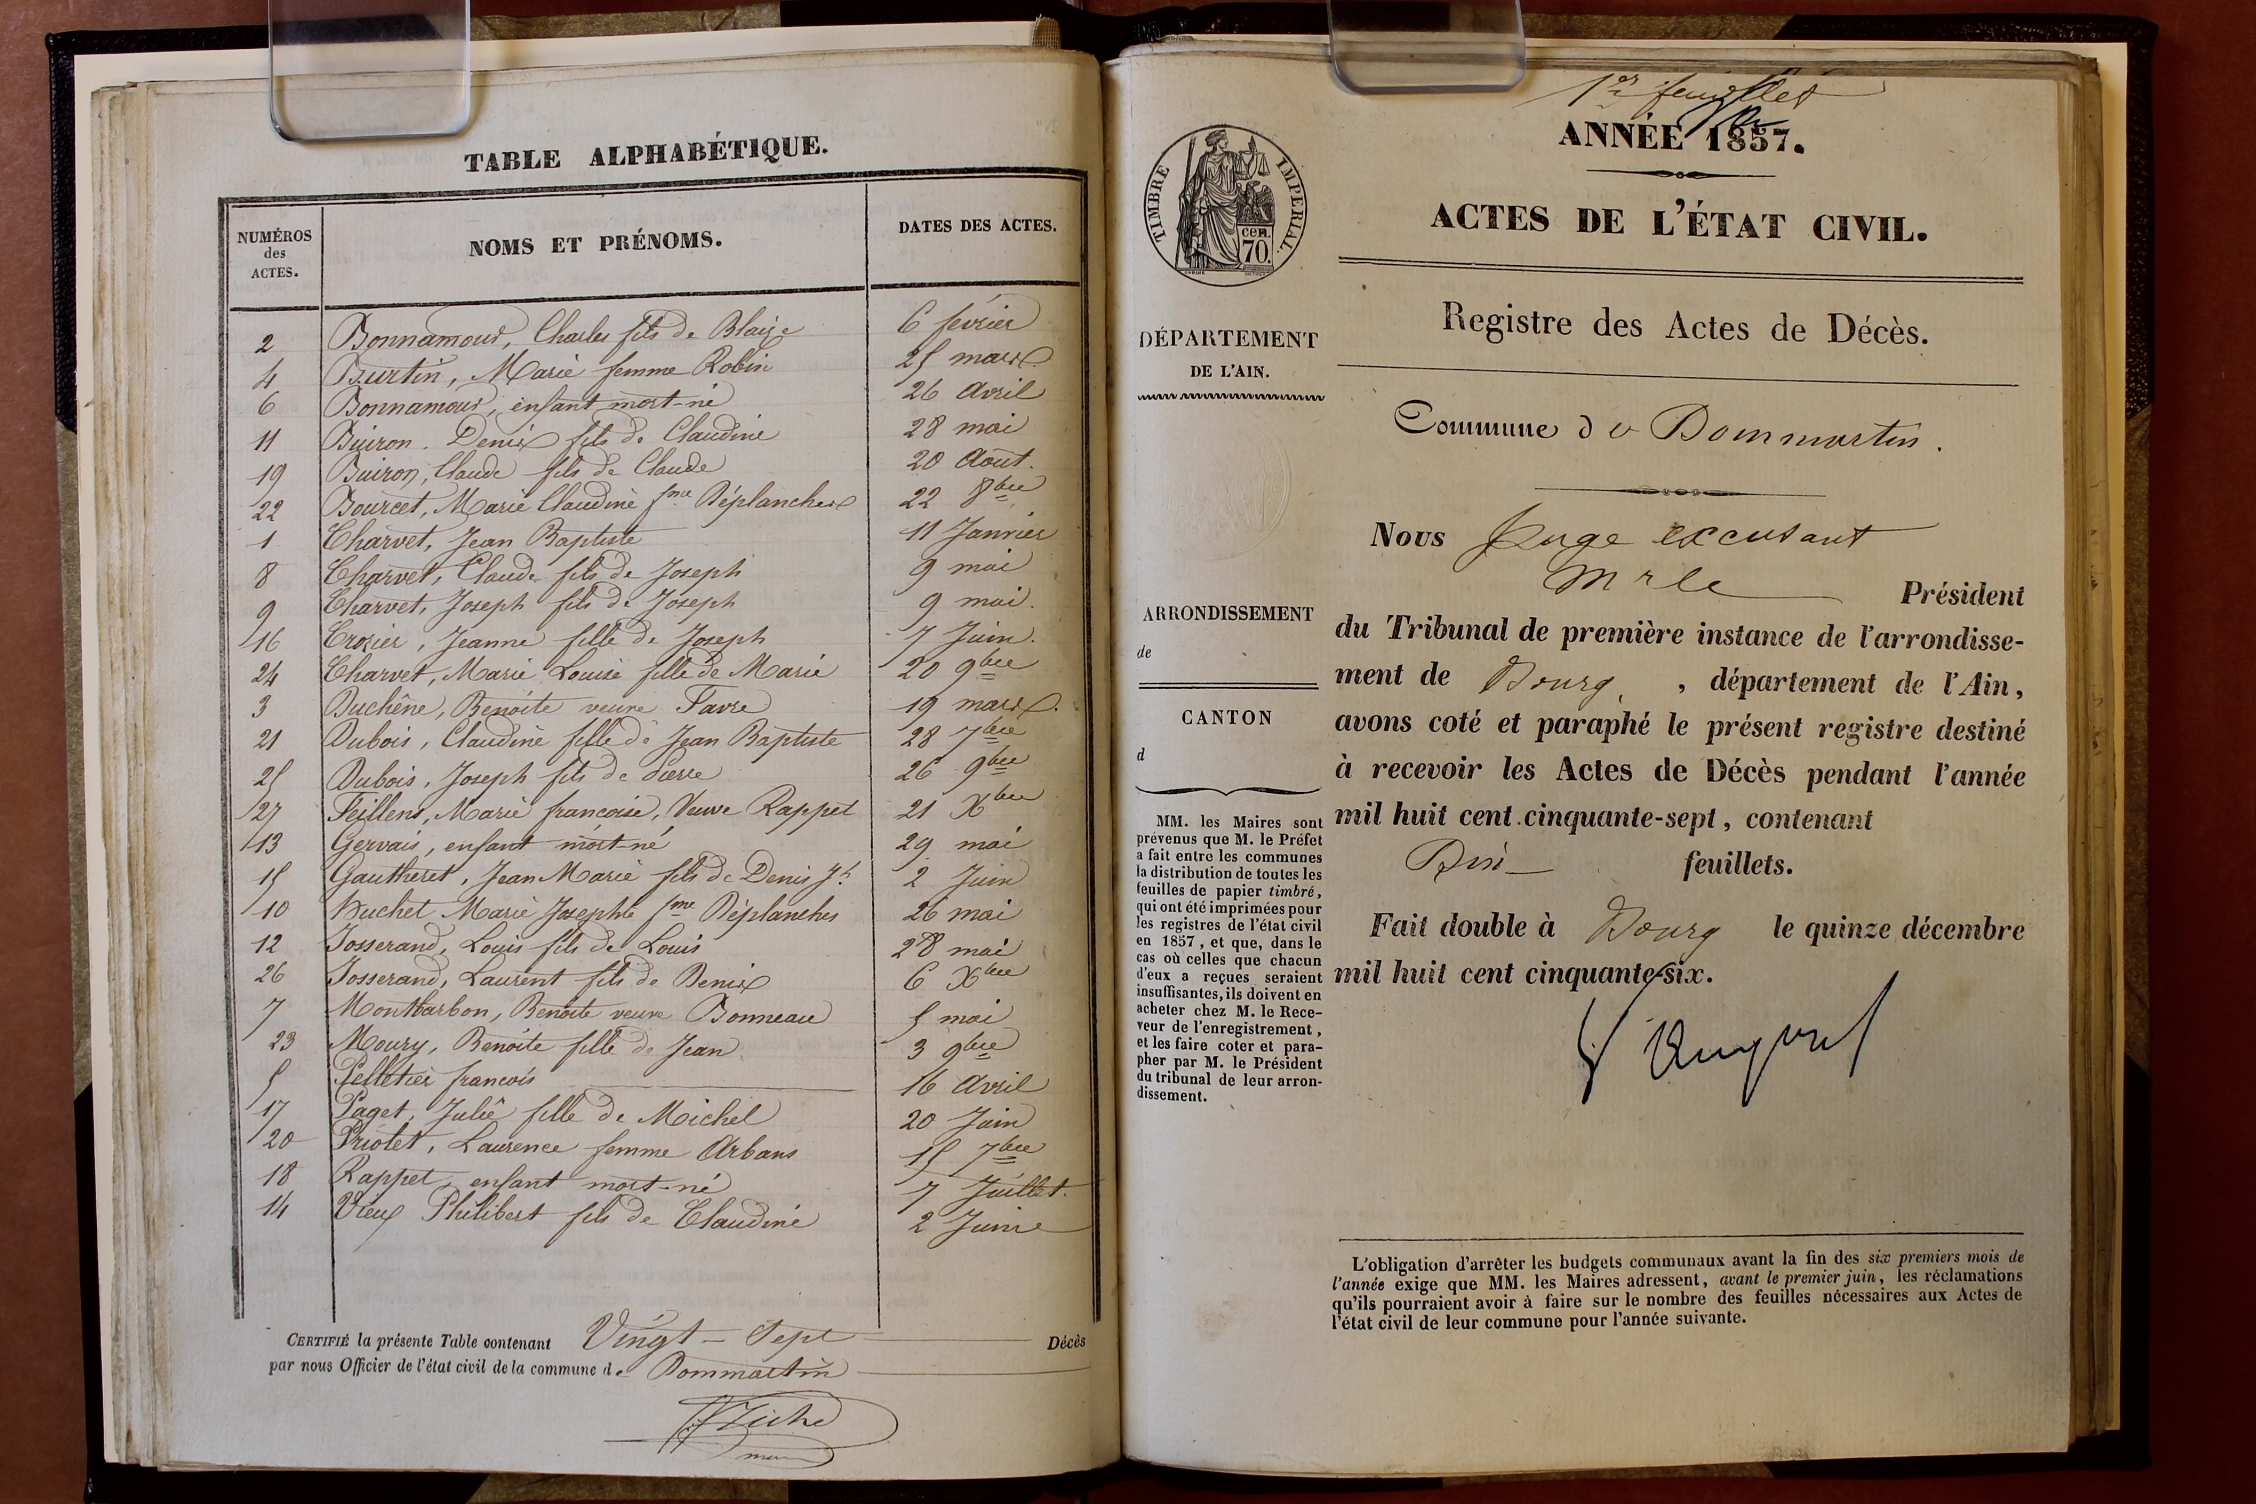 TABLE ALPHABÉTIQUE.
NUMÉROS des ACTES. NOMS ET PRÉNOMS. DATES DES ACTES.
2 Bonnamour, Charles fils de Blaize 6 février
4 Burtin, Marie femme Robin 25 mars
6 Bonnamour, enfant mort-né 26 avril
11 Buiron Denis fils de Claudine 28 mai
19 Buiron, Claude fils de Claude 20 Août.
22 Bourcet, Marie Claudine fme Déplanches 22 8bre
1 Charvet, Jean Baptiste 11 Janvier
8 Charvet, Claude fils de Joseph 9 mai
9 Charvet, Joseph fils de Joseph 9 mai.
16 Crozier, Jeanne fille de Joseph 7 Juin.
24 Charvet, Marie Louise fille de Marie 20 9bre
3 Duchêne, Benoite veuve Favre 19 mars.
21 Dubois, Claudine fille de Jean Baptiste 28 7bre
25 Dubois, Joseph fils de Pierre 26 9bre
27 Feillens, Marie francoise, Veuve Rappet 21 Xbre
13 Gervais, enfant mort-né 29 mai
15 Gautheret, Jean Marie fils de Denis Jh. 2 Juin
10 Huchet Marie Josephte fme Déplanches 26 mai
12 Josserand, Louis fils de Louis 28 mai
26 Josserand, Laurent fils de Denis 6 Xbre
7 Montbarbon, Benoite veuve Bonneau 5 mai
23 Moury, Benoite fille de Jean 3 9bre
5 Pelletier francois 16 avril
17 Paget, Julie fille de Michel 20 Juin
20 Priolet, Laurence femme Arbans 15 7bre
18 Rappet, enfant mort-né 7 Juillet.
14 Vieux Philibert fils de Claudine 2 Juin
CERTIFIÉ la présente Table contenant Vingt-Sept Décès
par nous Officier de l'état civil de la commune de Dommartin
1er feuillet
ANNÉE 1857.
ACTES DE L'ÉTAT CIVIL.
TIMBRE IMPERIAL.
cen.
70.
Registre des Actes de Décès.
DÉPARTEMENT
DE L'AIN.
Commune de Dommartin.
Nous Juge excusant
Mr le Président
du Tribunal de première instance de l'arrondisse-
ment de Bourg, département de l'Ain,
avons coté et paraphé le présent registre destiné
à recevoir les Actes de Décès pendant l'année
mil huit cent cinquante-sept, contenant
feuillets.
Fait double à Bourg le quinze décembre
mil huit cent cinquante-six.
ARRONDISSEMENT
de
CANTON
d
MM. les Maires sont
prévenus que M. le Préfet
a fait entre les communes
la distribution de toutes les
feuilles de papier timbré,
qui ont été imprimées pour
les registres de l'état civil
en 1857, et que, dans le
cas où celles que chacun
d'eux a reçues seraient
insuffisantes, ils doivent en
acheter chez M. le Rece-
veur de l'enregistrement,
et les faire coter et para-
pher par M. le Président
du tribunal de leur arron-
dissement.
L'obligation d'arrêter les budgets communaux avant la fin des six premiers mois de
l'année exige que MM. les Maires adressent, avant le premier juin, les réclamations
qu'ils pourraient avoir à faire sur le nombre des feuilles nécessaires aux Actes de
l'état civil de leur commune pour l'année suivante.